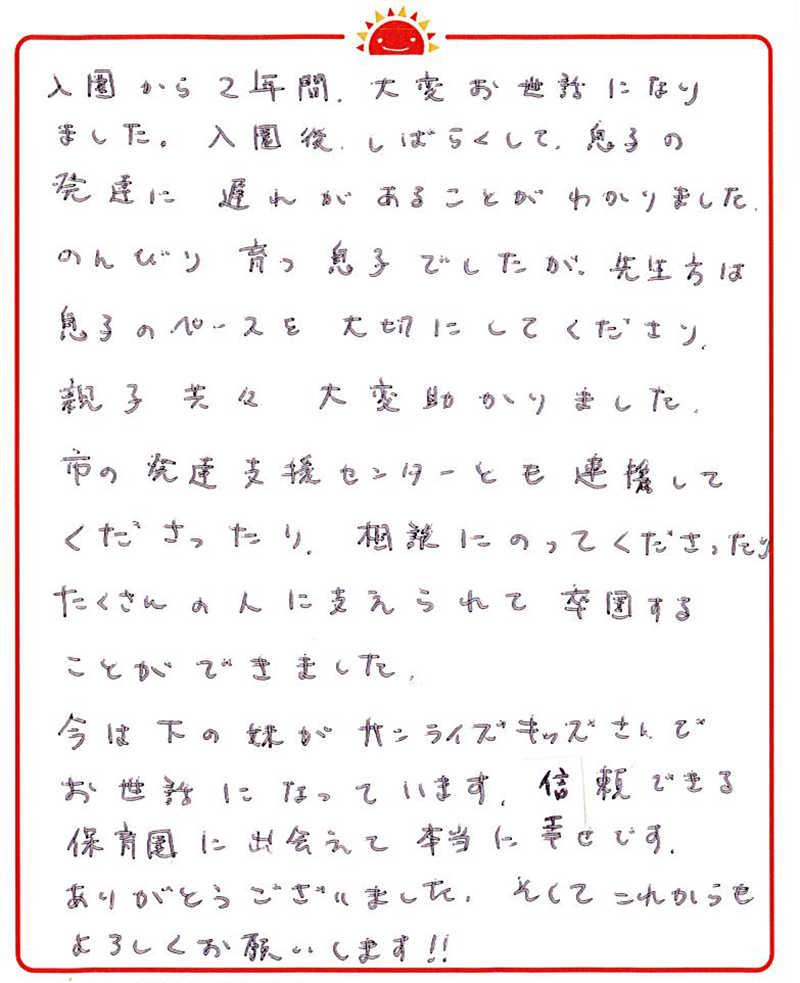 入園から2年間、大変お世話になり
ました。入園後、しばらくして、息子の
発達に遅れがあることがわかりました。
のんびり育つ息子でしたが、先生方は
息子のペースを大切にしてくださり、
親子共々大変助かりました。
市の発達支援センターとも連携して
くださったり、相談にのってくださったり
たくさんの人に支えられて卒園する
ことができました。
今は下の妹がサンライズキッズさんで
お世話になっています。信頼できる
保育園に出会えて本当に幸せです。
ありがとうございました。そしてこれからも
よろしくお願いします!!